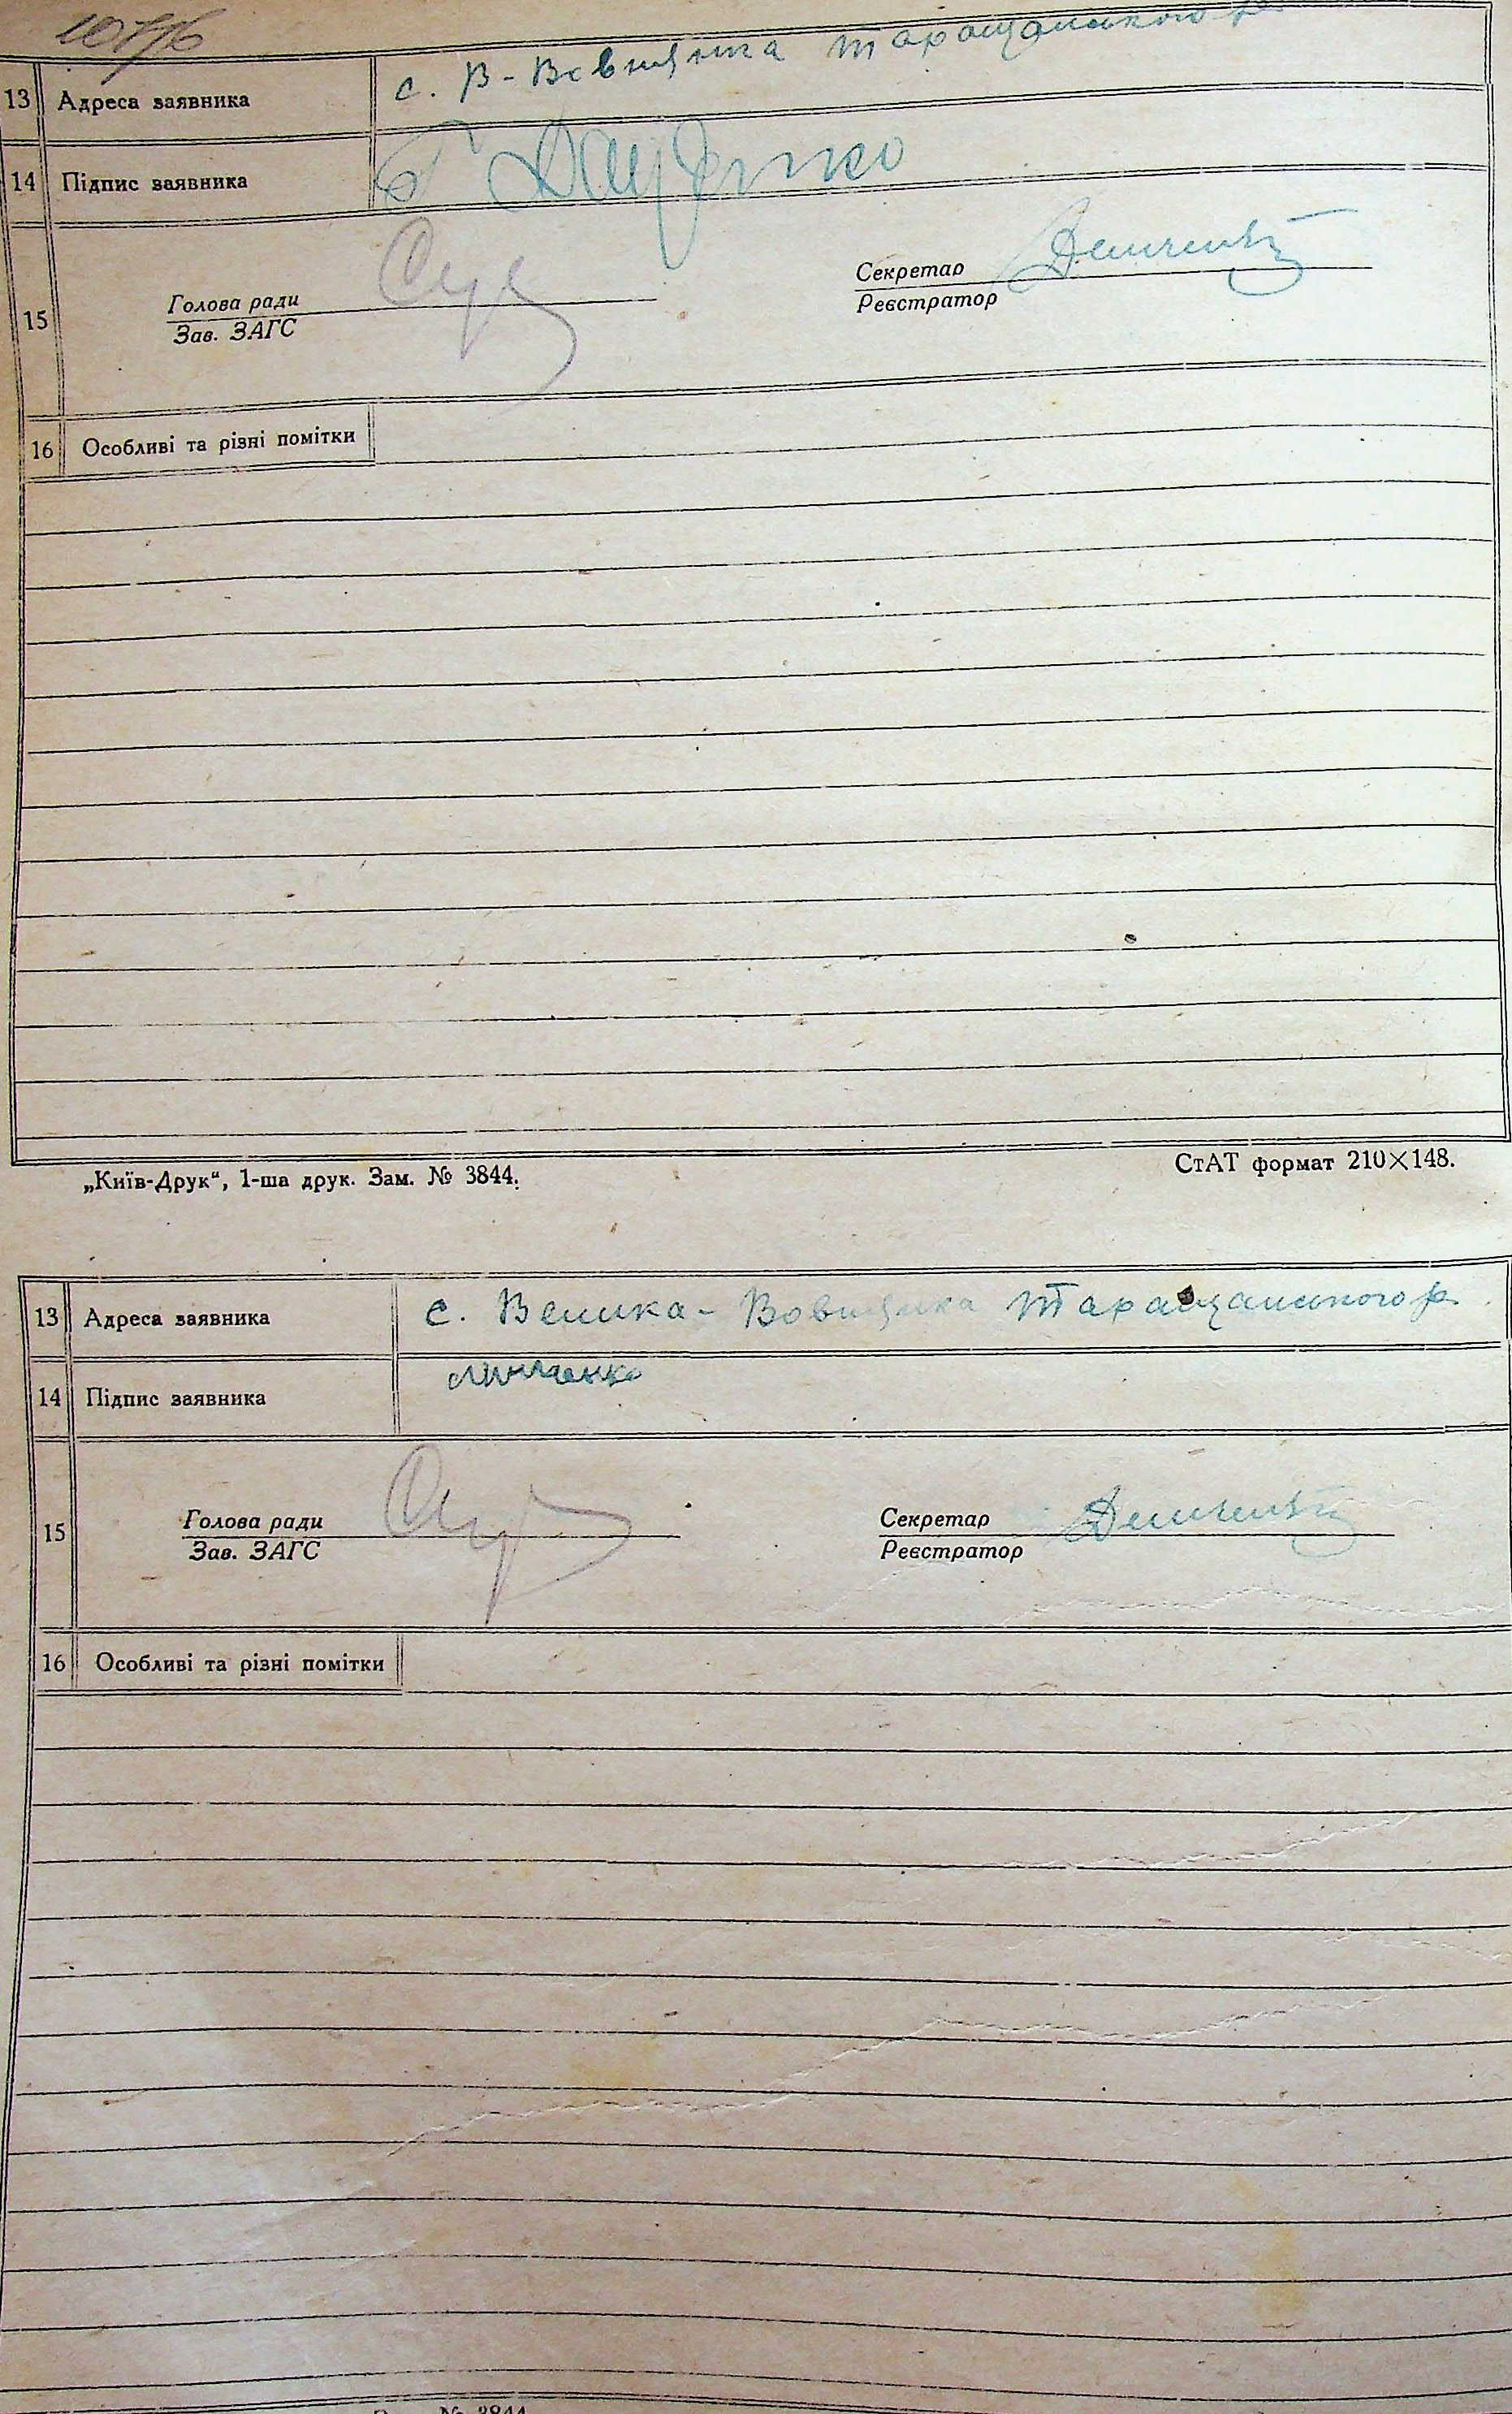 13 Адреса заявника с. В-Вовнянка Таращанського р.
14 Підпис заявника
15 Голова ради Секретар Демченко
Зав. ЗАГС Реєстратор
16 Особливі та різні помітки
„Київ-Друк“, 1-ша друк. Зам. № 3844. СтАТ формат 210×148.
13 Адреса заявника с. Велика-Вовнянка Таращанського р.
14 Підпис заявника
15 Голова ради Секретар Демченко
Зав. ЗАГС Реєстратор
16 Особливі та різні помітки
№ 3844